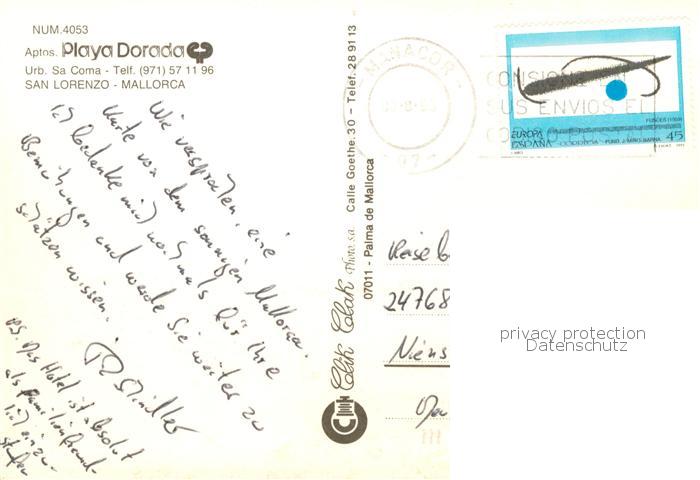 NUM.4053
Aptos. Playa Dorada
Urb. Sa Coma - Telf. (971) 57 11 96
SAN LORENZO - MALLORCA
Wie versprochen, eine
Karte von dem sonnigen Mallorca.
Ich bedanke mich nochmals für Ihre
Bemühungen und werde Sie weiter zu
schätzen wissen.
PS. Das Hotel ist absolut
als familienfreund-
lich einzu-
stufen
Clik Clak Photo, s.a. Calle Goethe, 30 - Telef. 28 91 13
07011 - Palma de Mallorca
MANACOR
07
CONSIGNE EN
SUS ENVIOS EL
POSTAL
EUROPA
ESPAÑA
CORREOS
45
24768
privacy protection
Datenschutz